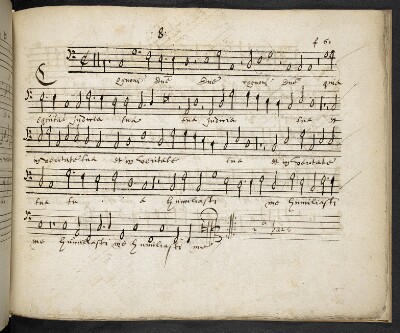 8
f 6.
Cognoui dne dne cognoui dne quia
equitas Judicia tua tua Judicia tua et
in veritate tua et in veritate tua et in veritate
tua tu a humiliasti me humiliasti
me humiliasti me humiliasti me